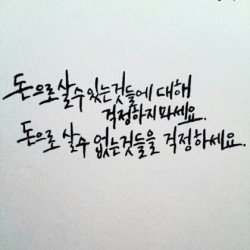 돈으로 살수 있는것들에 대해
걱정하지마세요.
돈으로 살수 없는것들을 걱정하세요.